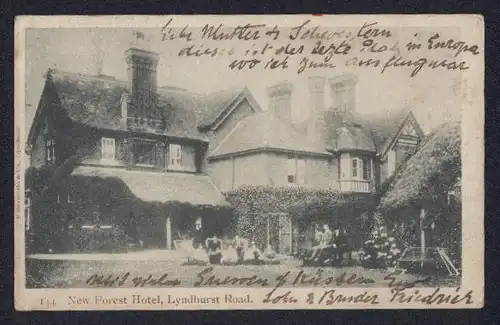 Liebe Mutter & Schwestern
dieses ist der letzte Platz in Europa
wo ich zum ausflug war
Mit vielen Grüssen & Küssen Euer
Sohn & Bruder Friedrich
144 New Forest Hotel, Lyndhurst Road.